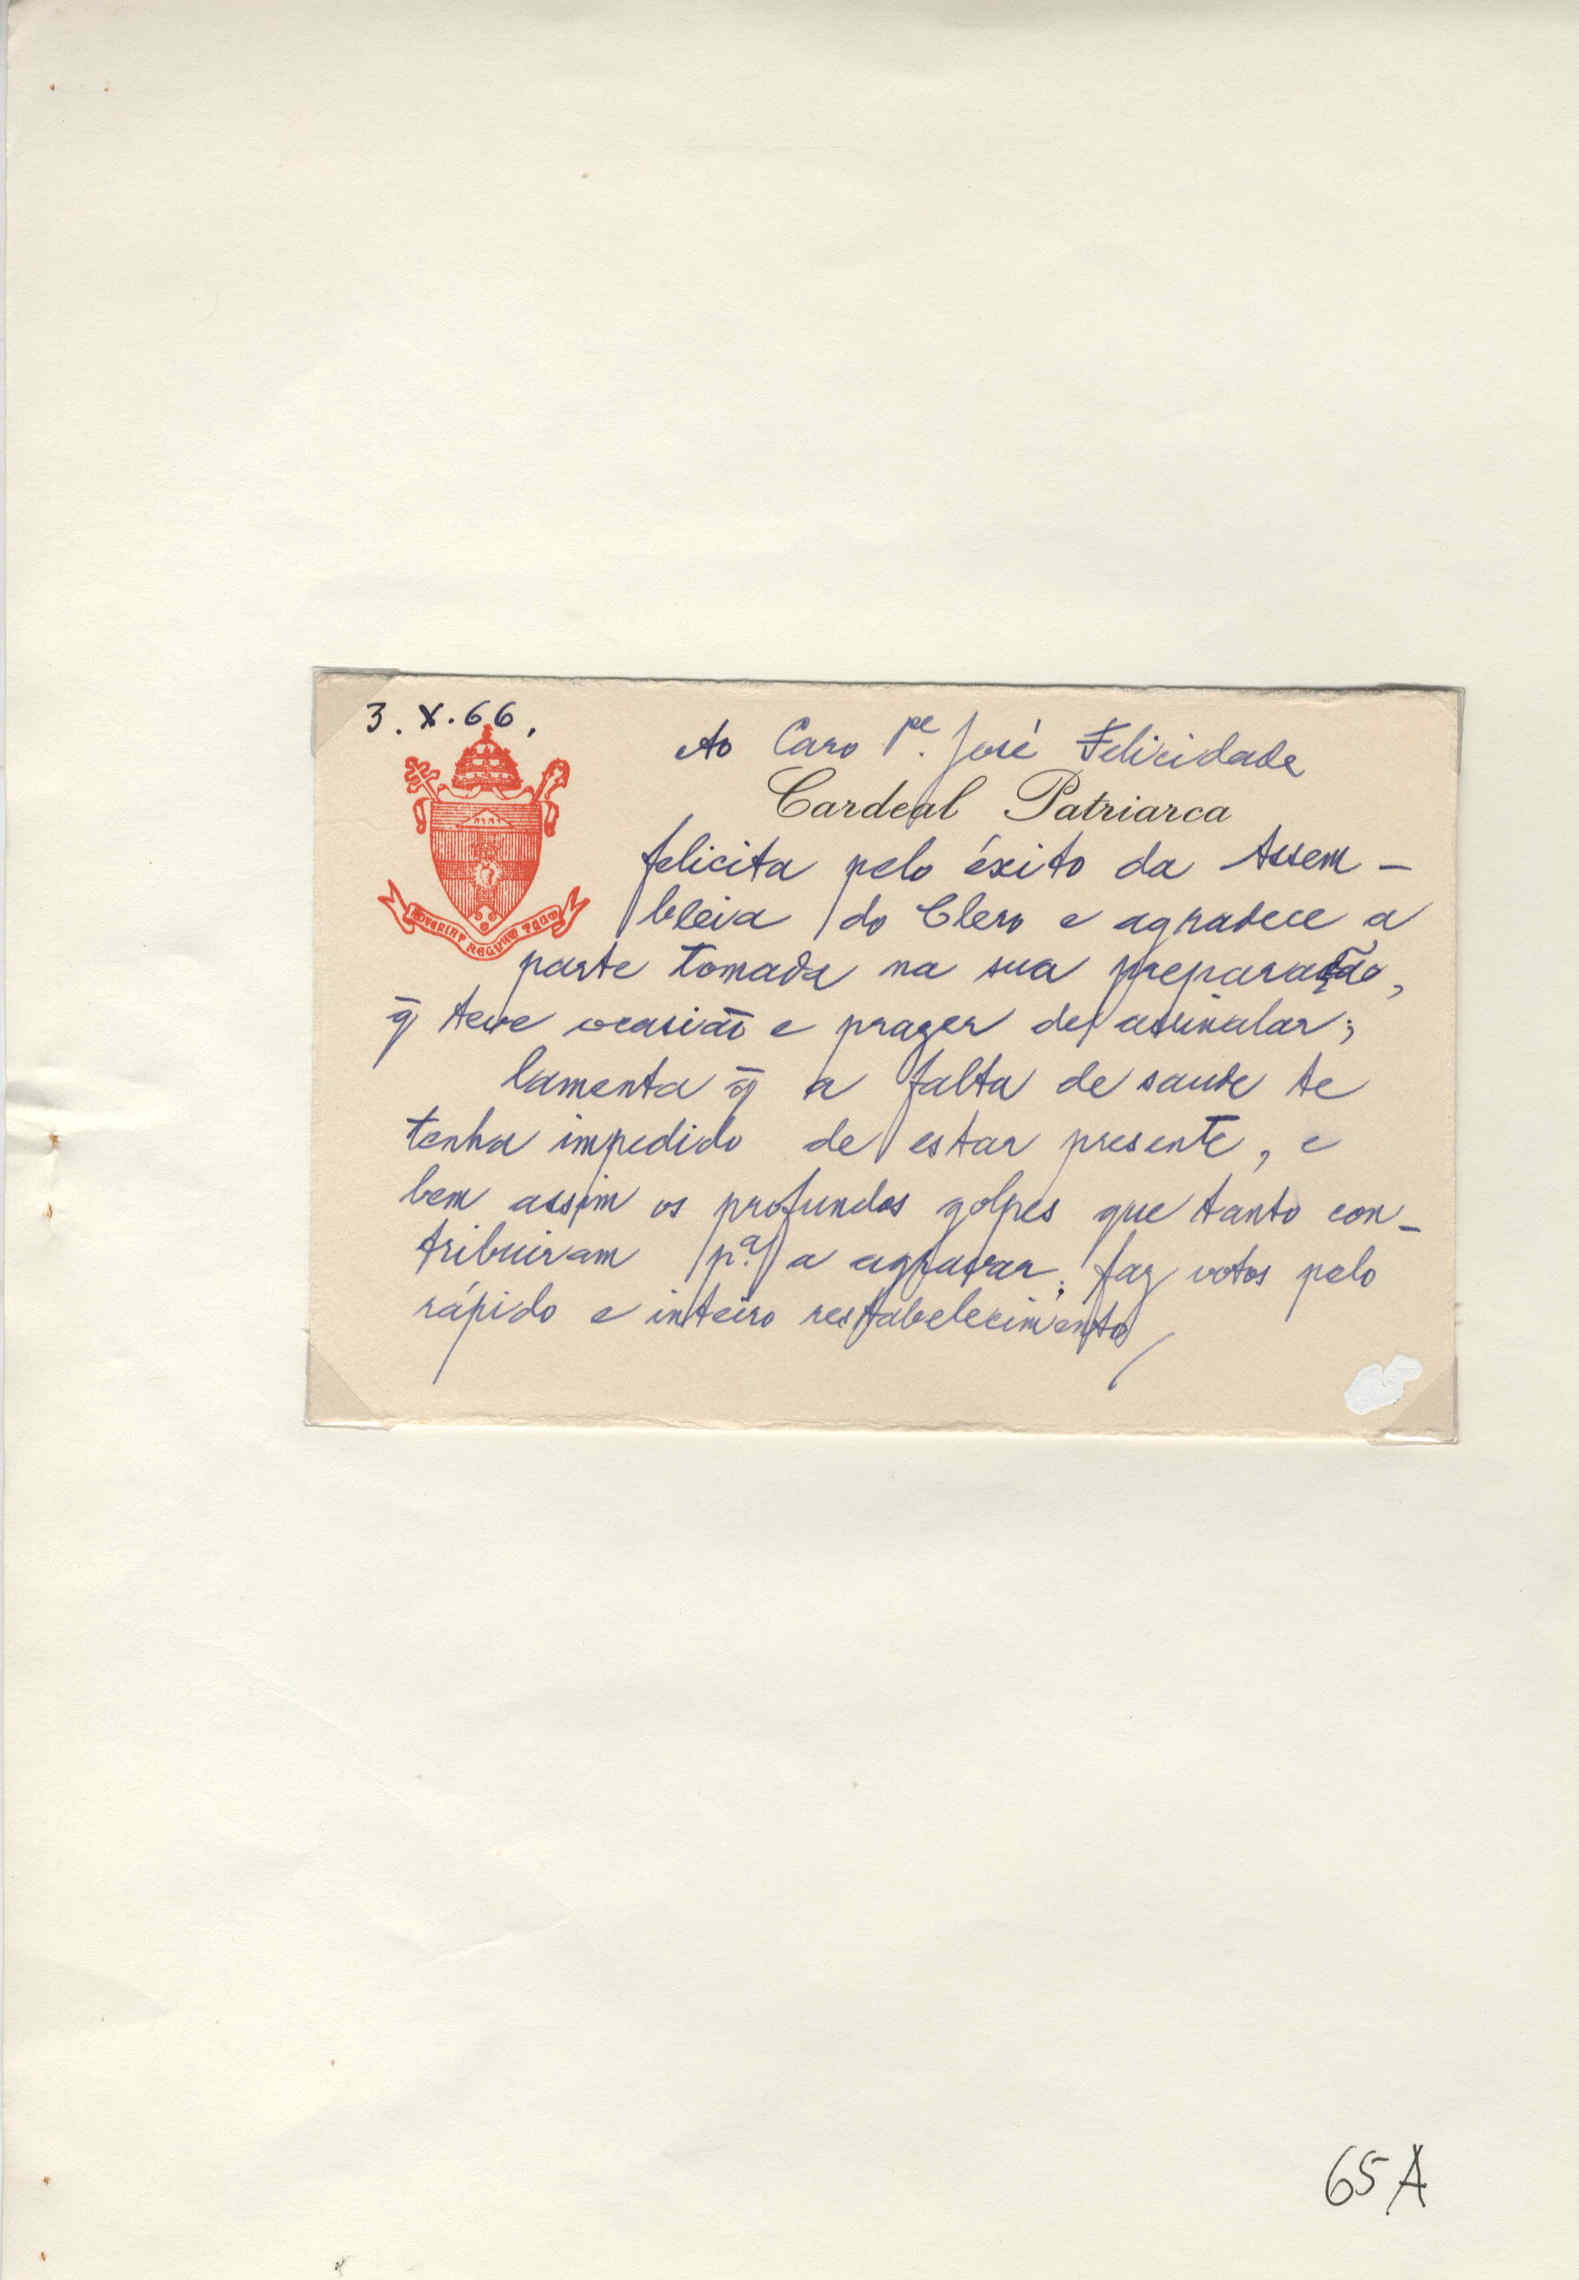 3. X. 66.
Ao Caro Pe. José Felicidade
Cardeal Patriarca
felicita pelo êxito da Assem-
bleia do Clero e agradece a
parte tomada na sua preparação,
q̄ teve ocasião e prazer de assinalar;
lamenta q̄ a falta de saude te
tenha impedido de estar presente, e
bem assim os profundos golpes que tanto con-
tribuiram pª. a agravar; faz votos pelo
rápido e inteiro restabelecimento
65A